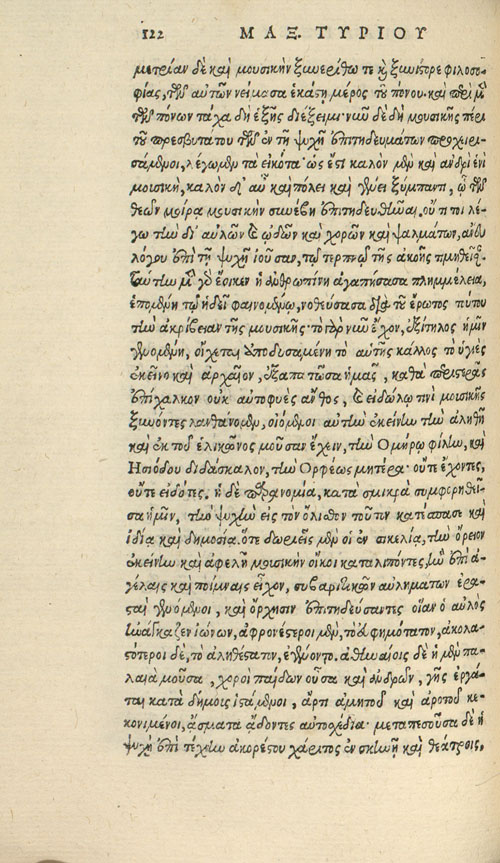 122 ΜΑΞ. ΤΥΡΙΟΥ
μετρίαν δὲ καὶ μουσικὴν ξυνερίθω τε καὶ ξυνίστορε φιλοσο-
φίας, τῆς αὐτῶν νείμασα ἑκάστη μέρος τοῦ πόνου. καὶ περὶ μὲν
τῆς πόνων τάχα δὴ ἑξῆς διέξειμι· νῦν δὲ δὴ μουσικῆς πέρι
τοῦ πρεσβυτάτου τῆς ἐν τῇ ψυχῇ ἐπιτηδευμάτων προχειρι-
σάμενοι, λέγωμεν τὰ εἰκότα· ὡς ἔστι καλὸν μὲν καὶ ἀνδρὶ ἑνὶ
μουσικὴ, καλὸν δ' αὖ καὶ πόλει καὶ γένει ξύμπαντι, ᾧ τῆς
θεῶν μοίρα μουσικὴν συνέβη ἐπιτηδευθῆναι, οὔ τι που λέ-
γω τὴν δι' αὐλῶν καὶ ᾠδῶν καὶ χορῶν καὶ ψαλμάτων, ἄνευ
λόγου ἐπὶ τῇ ψυχῇ ἰοῦσαν, τῷ τερπνῷ τῆς ἀκοῆς τιμηθεῖσαν.
ταύτην μὲν γὰρ ἔοικεν ἡ ἀνθρωπίνη ἀγαπήσασα πλημμέλεια,
ἑπομένη τῷ ἡδεῖ φαινομένῳ, νοθεύσασα διὰ τοῦ ἔρωτος τούτου
τὴν ἀκρίβειαν τῆς μουσικῆς· τὸ γὰρ νῦν ἔχον, ἐξίτηλος ἡμῖν
γενομένη, οἴχεται ὑποδυσαμένη τὸ αὑτῆς κάλλος τὸ ὑγιὲς
ἐκεῖνο καὶ ἀρχαῖον, ἐξαπατῶσα ἡμᾶς, καθάπερ
ἐπίχαλκον οὐκ αὐτοφυὲς ἄνθος, καὶ εἰδώλῳ τινὶ μουσικῆς
ξυνόντες λανθάνομεν, οἰόμενοι αὐτὴν ἐκείνην τὴν ἀληθῆ
καὶ ἐκ τοῦ ἑλικῶνος μοῦσαν ἔχειν, τὴν Ὁμήρῳ φίλην, καὶ
Ἡσιόδου διδάσκαλον, τὴν Ὀρφέως μητέρα· οὔτε ἔχοντες,
οὔτε εἰδότες. ἡ δὲ παρανομία, κατὰ σμικρὰ συμφορηθεῖ-
σα ἡμῖν, τὴν ψυχὴν εἰς τὸν ὄλισθον τοῦτον κατέσπασε καὶ
ἰδίᾳ καὶ δημοσίᾳ. ὅτε δωριεῖς μὲν οἱ ἐν σικελίᾳ, τὴν ὄρειον
ἐκείνην καὶ ἀφελῆ μουσικὴν οἴκοι καταλιπόντες, ἣν ἐπὶ ἀ-
γέλαις καὶ ποίμναις εἶχον, συβαριτικῶν αὐλημάτων ἐρα-
σταὶ γενόμενοι, καὶ ὄρχησιν ἐπιτηδεύσαντες οἵαν ὁ αὐλὸς
ἠνάγκαζεν ἰώνων, ἀφρονέστεροι μὲν, τὸ εὐφημότατον, ἀκολα-
στότεροι δὲ, τὸ ἀληθέστατον, ἐγένοντο. ἀθηναίοις δὲ ἡ μὲν πα-
λαιὰ μοῦσα, χοροὶ παίδων οὖσα καὶ ἀνδρῶν, γῆς ἐργά-
ται κατὰ δήμους ἱστάμενοι, ἄρτι ἀμητοῦ καὶ ἀρότου κε-
κονιμένοι, ᾄσματα ᾄδοντες αὐτοσχέδια· μεταπεσοῦσα δὲ ἡ
ψυχὴ ἐπὶ τέχνην ἀκορέστου χάριτος ἐν σκηνῇ καὶ θεάτροις.